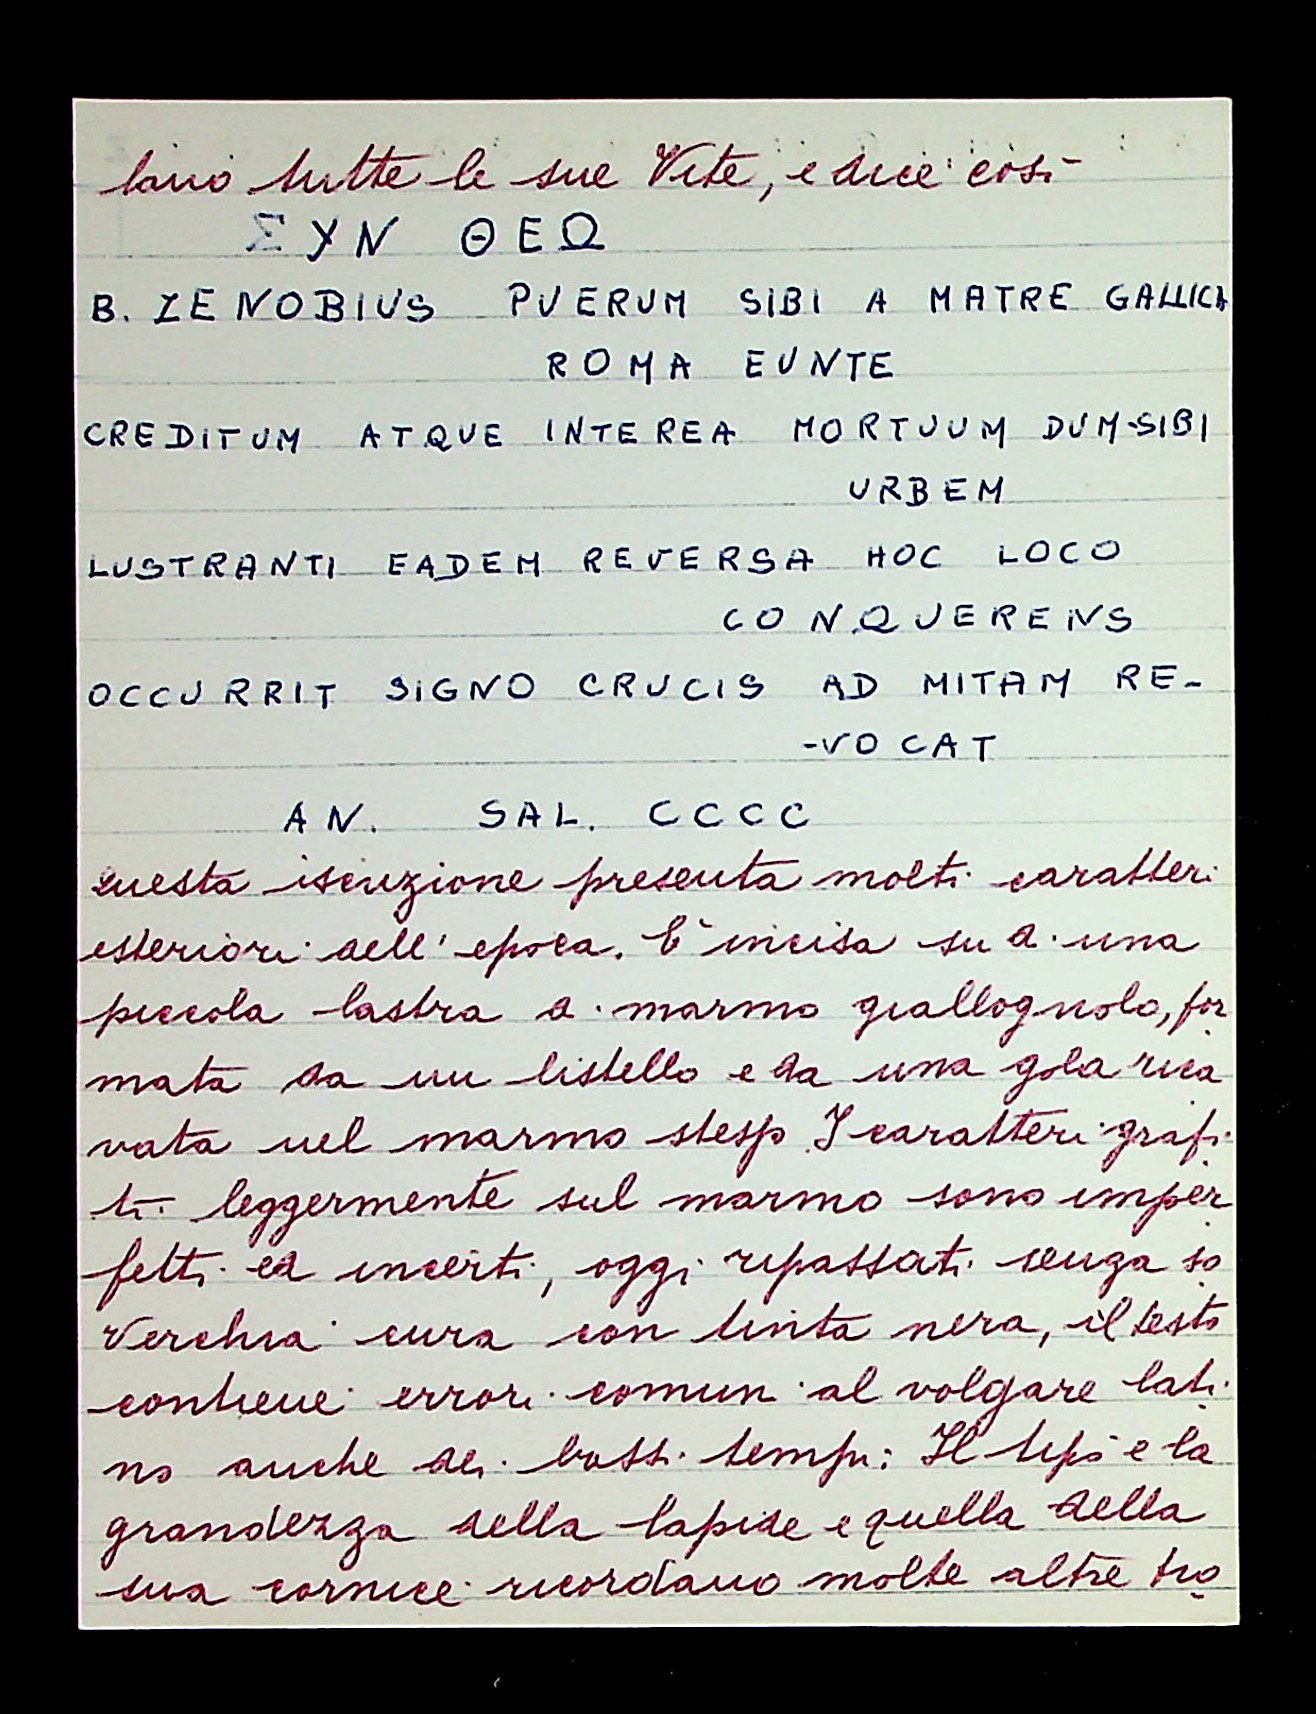 lano tutte le sue Vite, e dice così
ΣΥΝ ΘΕΩ
B. ZENOBIUS PUERUM SIBI A MATRE GALLICA
ROMA EUNTE
CREDITUM ATQUE INTEREA MORTUUM DUM SIBI
URBEM
LUSTRANTI EADEM REVERSA HOC LOCO
CONQUERENS
OCCURRIT SIGNO CRUCIS AD MITAM RE-
-VOCAT
AN. SAL. CCCC
questa iscrizione presenta molti caratteri
esteriori dell'epoca. È incisa su di una
piccola lastra di marmo giallognolo, for
mata da un listello e da una gola rica
vata nel marmo stesso I caratteri grafi
ti leggermente sul marmo sono imper
fetti ed incerti, oggi ripassati senza so
verchia cura con tinta nera, il testo
contiene errori comuni al volgare lati
no anche dei bassi tempi: Il tipo e la
grandezza della lapide e quella della
sua cornice ricordano molte altre tro